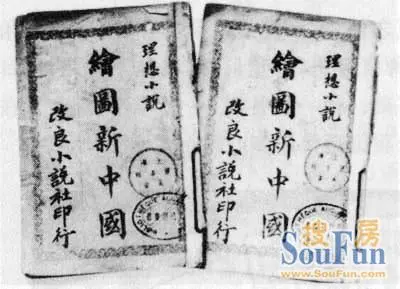 理想小說
繪圖新中國
改良小說社印行
理想小說
繪圖新中國
改良小說社印行
搜房
SouFun
www.SouFun.com